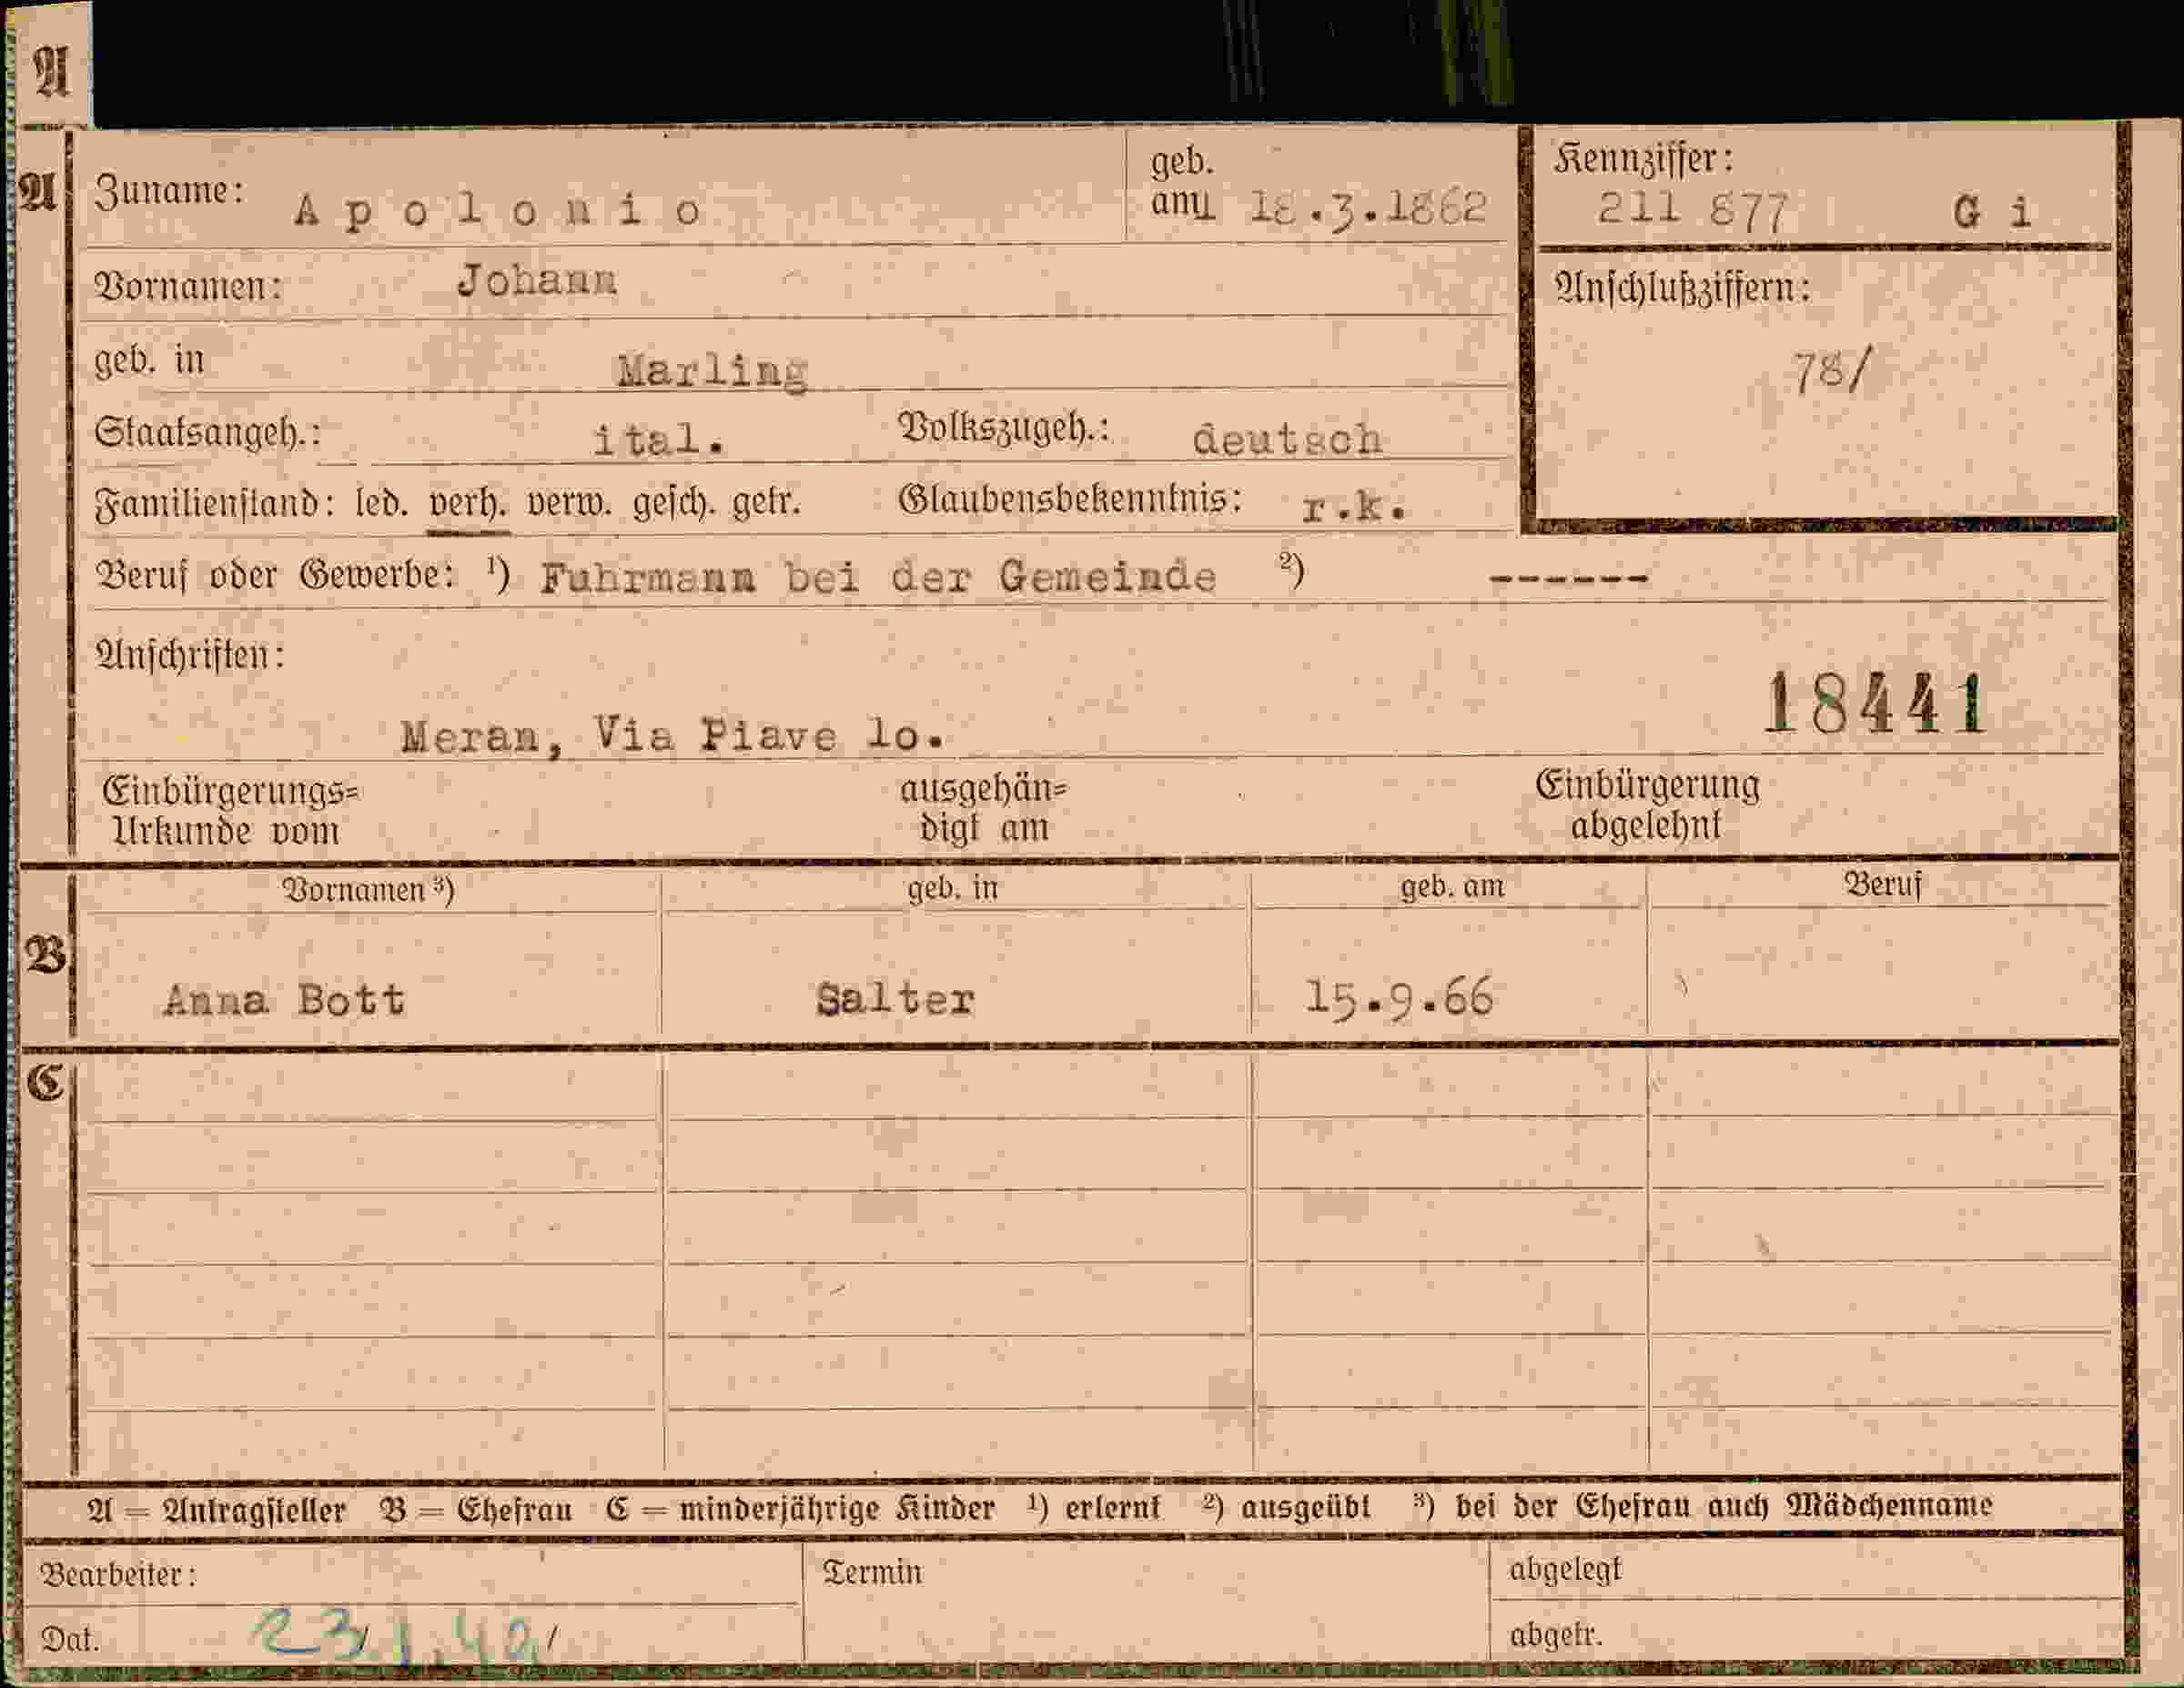 A
A Zuname: Apolonio geb. am 18.3.1862 Kennziffer: 211 877 Gi
Vornamen: Johann Anschlußziffern:
geb. in Marling 78/
Staatsangeh.: ital. Volkszugeh.: deutsch
Familienstand: led. verh. verw. gesch. getr. Glaubensbekenntnis: r.k.
Beruf oder Gewerbe: ¹) Fuhrmann bei der Gemeinde ²) ------
Anschriften:
18441
Meran, Via Piave lo.
Einbürgerungs= ausgehän= Einbürgerung
Urkunde vom digt am abgelehnt
Vornamen ³) geb. in geb. am Beruf
B
Anna Bott Salter 15.9.66
C
A = Antragsteller B = Ehefrau C = minderjährige Kinder ¹) erlernt ²) ausgeübt ³) bei der Ehefrau auch Mädchenname
Bearbeiter: Termin abgelegt
Dat. 23/1.42/ abgetr.